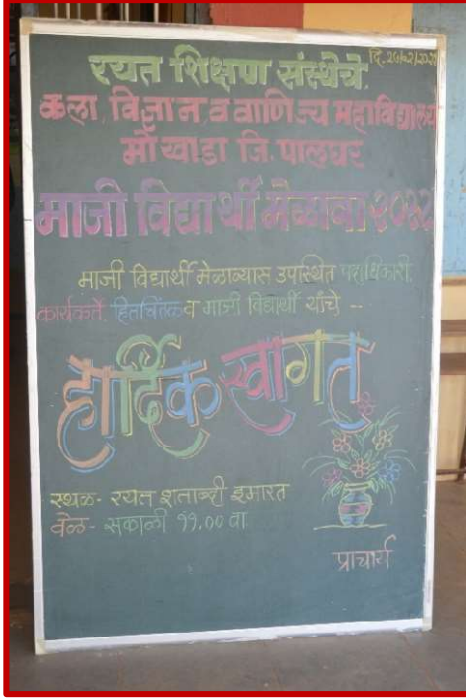 रयत शिक्षण संस्थेचे,
कला, विज्ञान, व वाणिज्य महाविद्यालय
मोखाडा जि. पालघर
माजी विद्यार्थी मेळावा २०२२
माजी विद्यार्थी मेळाव्यास उपस्थित पदाधिकारी,
कार्यकर्ते, हितचिंतक व माजी विद्यार्थी यांचे --
हार्दिक स्वागत
स्थळ- रयत शताब्दी इमारत
वेळ- सकाळी ११.०० वा.
प्राचार्य